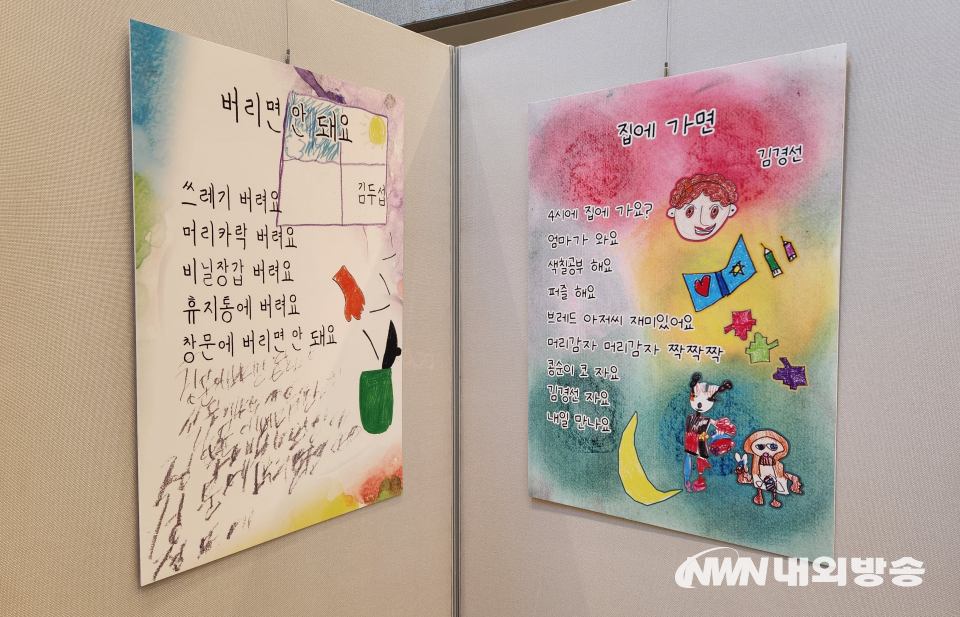 버리면 안 돼요
김두섭
쓰레기 버려요
머리카락 버려요
비닐장갑 버려요
휴지통에 버려요
창문에 버리면 안 돼요
집에 가면
김경선
4시에 집에 가요?
엄마가 와요
색칠공부 해요
퍼즐 해요
브레드 아저씨 재미있어요
머리감자 머리감자 짝짝짝
콩순이 코 자요
김경선 자요
내일 만나요
NWN내외방송